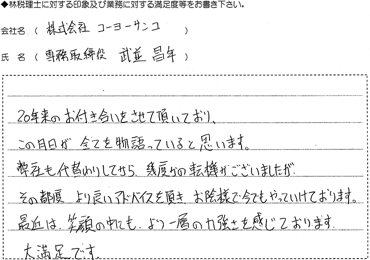 ◆林税理士に対する印象及び業務に対する満足度等をお書き下さい。
会社名 ( 株式会社 コーヨーサンコ )
氏 名 ( 専務取締役 武並 昌年 )
20年来のお付き合いをさせて頂いており、
この月日が 全てを物語っていると思います。
弊社も代替わりしてから、幾度かの転機がございましたが
その都度 より良いアドバイスを頂き お陰様で今でもやっていけております。
最近は、笑顔の中にも、より一層の力強さを感じております
大満足です。